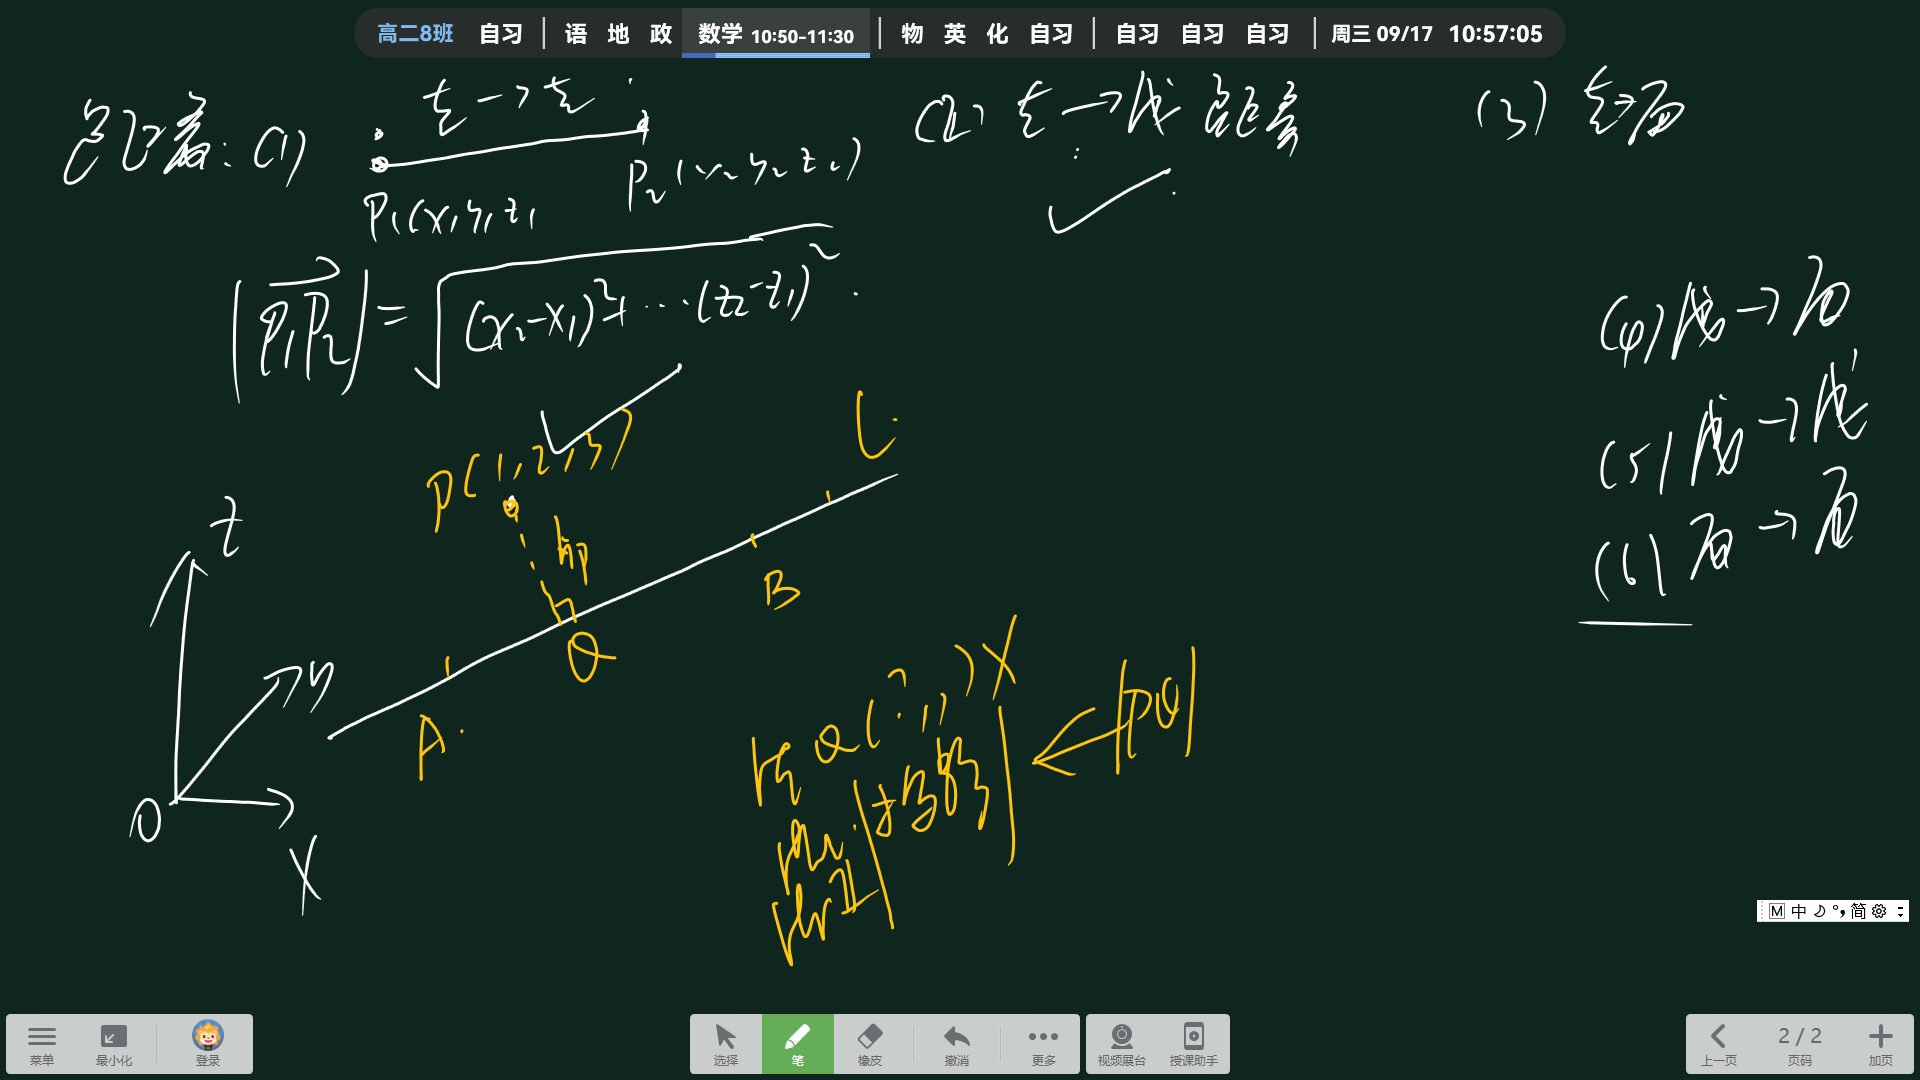 高二8班 自习 | 语 地 政 数学 10:50-11:30 | 物 英 化 自习 | 自习 自习 自习 | 周三 09/17 10:57:05
距离: (1) 点→点
(2) 点→线 距离
(3) 点→面
P₁(x₁,y₁,z₁
P₂(x₂,y₂,z₂)
|P₁P₂|=√(x₂-x₁)²+…(z₂-z₁)²
(4) 线→面
(5) 线→线
(6) 面→面
P(1,2,3)
L
B
Q
A
z
y
x
O
Q(?,,)
|PQ|
M 中 简
菜单 最小化 登录
选择 笔 橡皮 撤消 更多
视频展台 授课助手
上一页 2 / 2 页码 加页